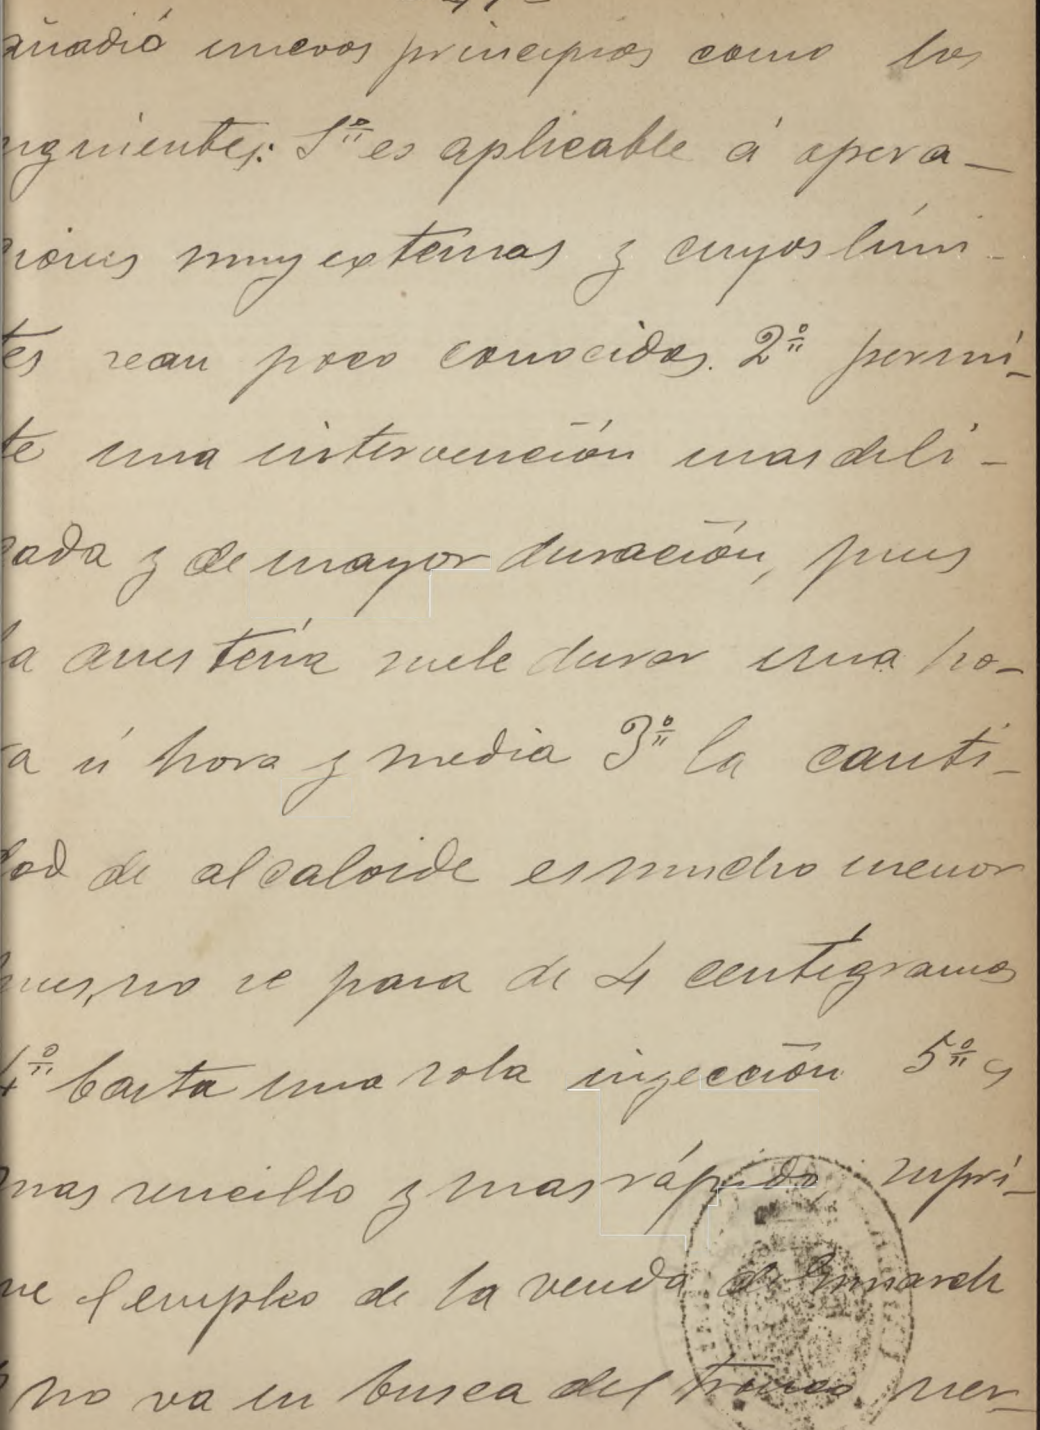 añadió nuevos principios como los
siguientes: 1º es aplicable á opera-
ciones muy extensas y cuyos lími-
tes sean poco conocidos. 2º permi-
te una intervención mas deli-
cada y de mayor duración, pues
la anestesia suele durar una ho-
ra ú hora y media 3º la canti-
dad de alcaloide es mucho menor
pues, no se pasa de 4 centigramos
4º basta una sola inyección 5º es
mas sencillo y mas rápido supri-
me el empleo de la venda de Esmarch
y no va en busca del tronco ner-